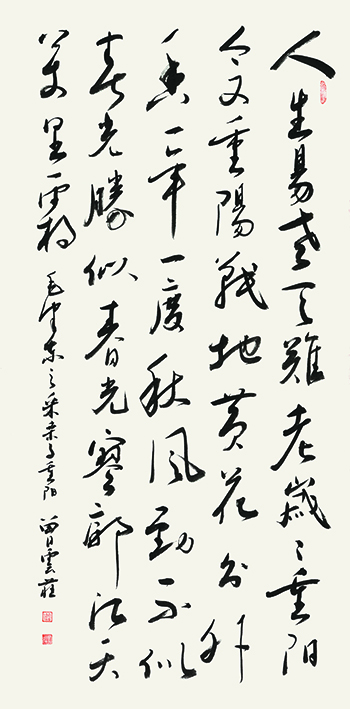 人生易老天難老歲〻重阳
今又重陽戰地黄花分外
香一年一度秋風勁不似
春光勝似春光寥廓江天
萬里霜 毛泽东之采桑子重阳 雲莊